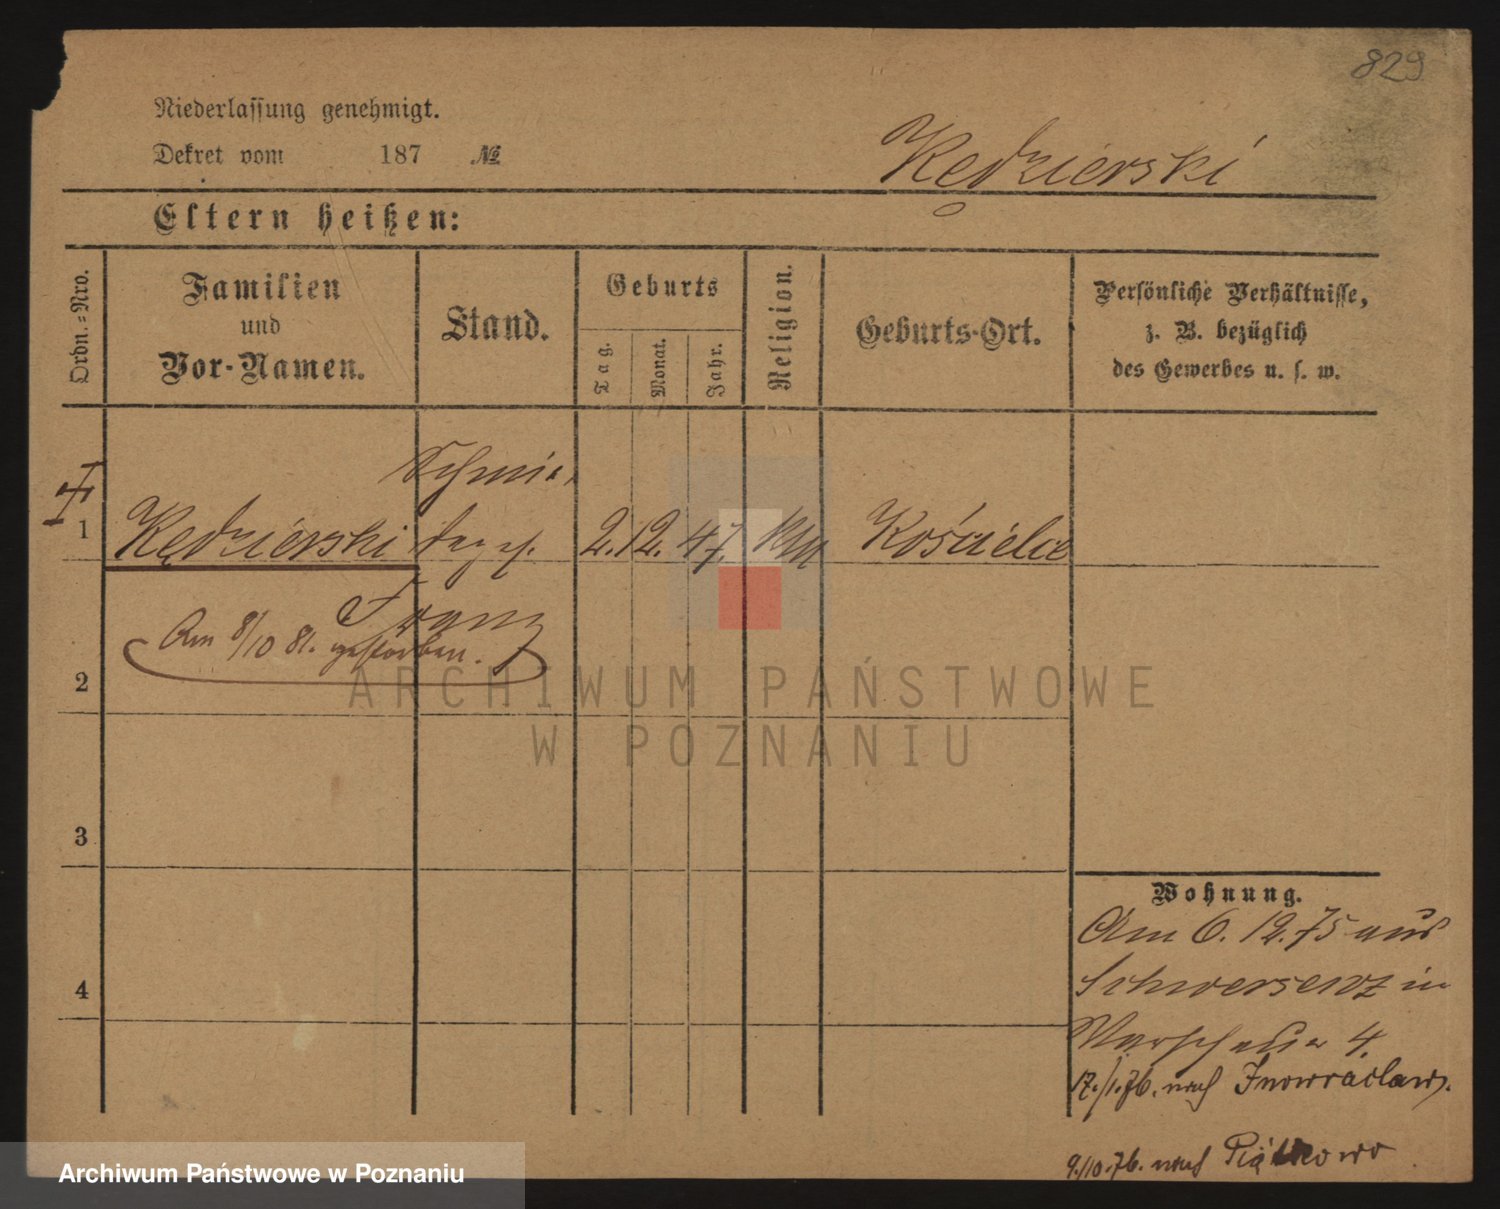 829
Niederlassung genehmigt.
Dekret vom 187 №
Kędzierski
Eltern heißen:
Ordn.-Nro.
Familien
und
Vor-Namen.
Stand.
Geburts
Tag.
Monat.
Jahr.
Religion.
Geburts-Ort.
Persönliche Verhältnisse,
z. B. bezüglich
des Gewerbes u. s. w.
1
Kędzierski
Schmie
deges.
2. 12. 47.
Kościelec
Franz
Am 8/10 81. gestorben.
2
3
4
Wohnung.
Am 6. 12. 75 aus
Schwersenz in
Warschauer 4.
17./1.76. nach Inowraclaw.
9./10.76. nach Piątkowo
ARCHIWUM PAŃSTWOWE
W POZNANIU
Archiwum Państwowe w Poznaniu